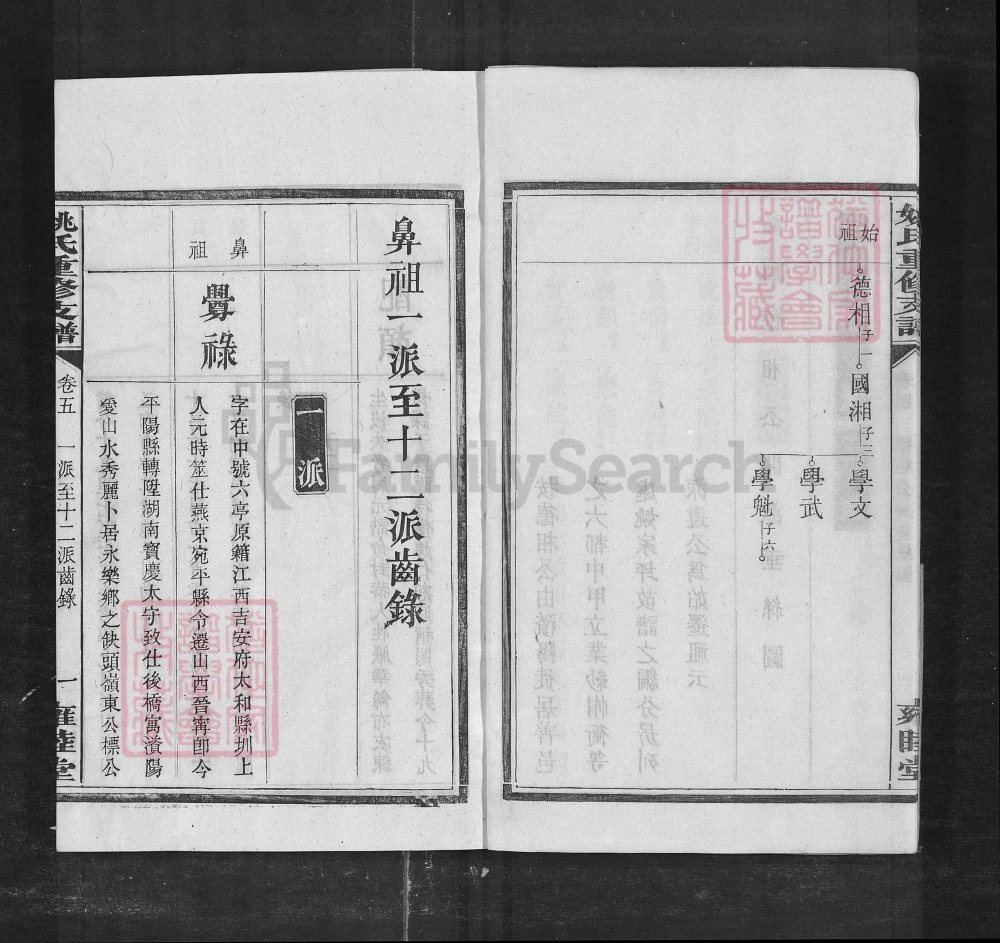 姚氏重修支譜
始祖
德相 子一
國湘 子三
學文
學武
學魁 子六
睦堂
鼻祖一派至十二派齒錄
一派
鼻祖
覺祿
字在中號六亭原籍江西吉安府太和縣圳上
人元時筮仕燕京宛平縣令遷山西晉寧卽今
平陽縣轉陞湖南寶慶太守致仕後橋寓濱陽
愛山水秀麗卜居永樂鄉之缺頭嶺東公標公
姚氏重修支譜
卷五
一派至十二派齒錄
一
雍睦堂
FamilySearch